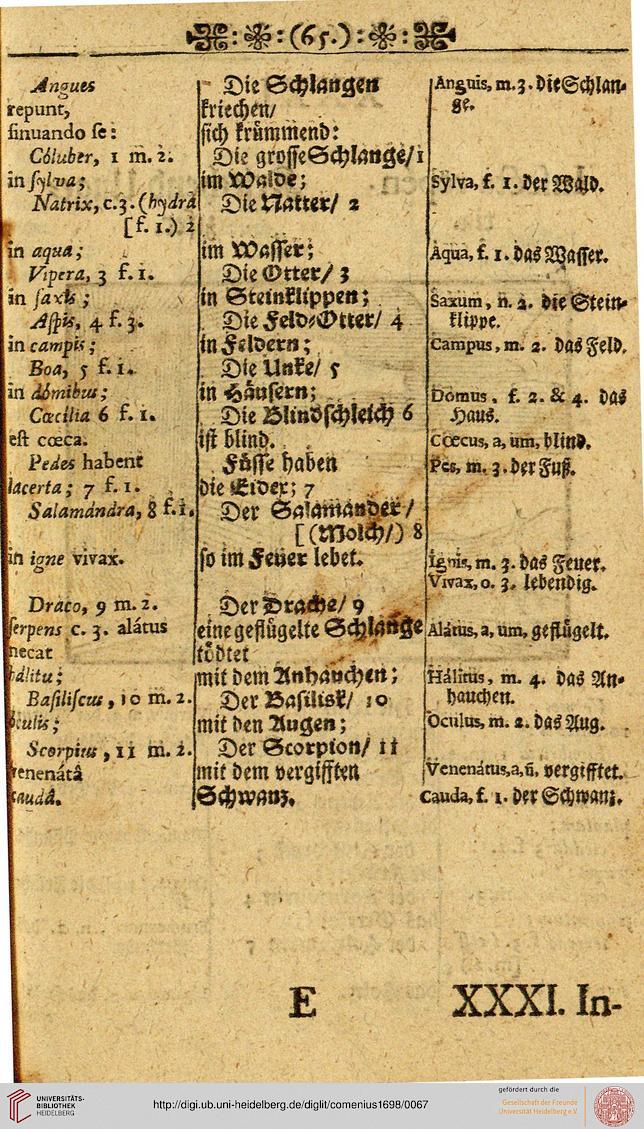 (65.)
Angues
repunt,
sinuando se:
Cóluber, 1 m. 2.
in sylva;
Natrix, c. 3. (hydra
[f. 1.) 2
in aqua;
Vipera, 3 f. 1.
in saxis;
Aspis, 4 f. 3.
in campis;
Boa, 5 f. 1.
in dómibus;
Cæcilia 6 f. 1.
est cœca.
Pedes habent
lacerta; 7 f. 1.
Salamándra, 8 f. 1.
in igne vivax.
Draco, 9 m. 2.
serpens c. 3. alátus
necat
hálitu;
Basiliscus, 10 m. 2.
óculis;
Scorpius, 11 m. 2.
venenátâ
caudâ.
Die Schlangen
kriechen/
sich krümmend:
Die grosse Schlange/ 1
im Walde;
Die Natter/ 2
im Wasser;
Die Otter/ 3
in Steinklippen;
Die Feld-Otter/ 4
in Feldern;
Die Unke/ 5
in Häusern;
Die Blindschleich 6
ist blind.
Füsse haben
die Eider; 7
Der Salamander/
[(Molch/) 8
so im Feuer lebet.
Der Drache/ 9
eine geflügelte Schlange
tödtet
mit dem Anhauchen;
Der Basilisk/ 10
mit den Augen;
Der Scorpion/ 11
mit dem vergifften
Schwanz.
Anguis, m. 3. die Schlan-
ge.
Sylva, f. 1. der Wald.
Aqua, f. 1. das Wasser.
Saxum, n. 2. die Stein-
klippe.
Campus, m. 2. das Feld.
Domus, f. 2. & 4. das
Haus.
Cœcus, a, um, blind.
Pes, m. 3. der Fuß.
Ignis, m. 3. das Feuer.
Vivax, o. 3. lebendig.
Alátus, a, um, geflügelt.
Hálitus, m. 4. das An-
hauchen.
Oculus, m. 2. das Aug.
Venenátus, a, ũ. vergifftet.
Cauda, f. 1. der Schwanz.
E XXXI. In-
UNIVERSITÄTS-
BIBLIOTHEK
HEIDELBERG
http://digi.ub.uni-heidelberg.de/diglit/comenius1698/0067
gefördert durch die
Gesellschaft der Freunde
Universität Heidelberg e.V.